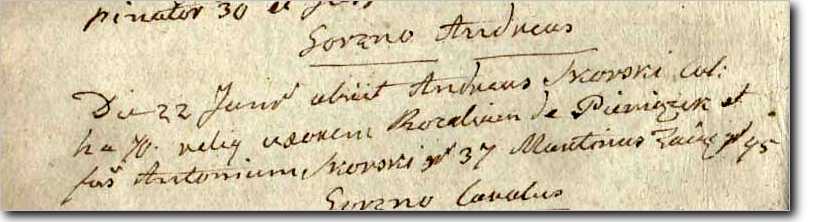 pinator 30 et
Gorzno Andreas
Die 22 Junÿ obiit Andreas Skorski col:
ha 70. reliq uxorem Rozaliam de Pieniązek et
fas Antonium Skorski 37 Martinus Zaiąc 45
Gorzno